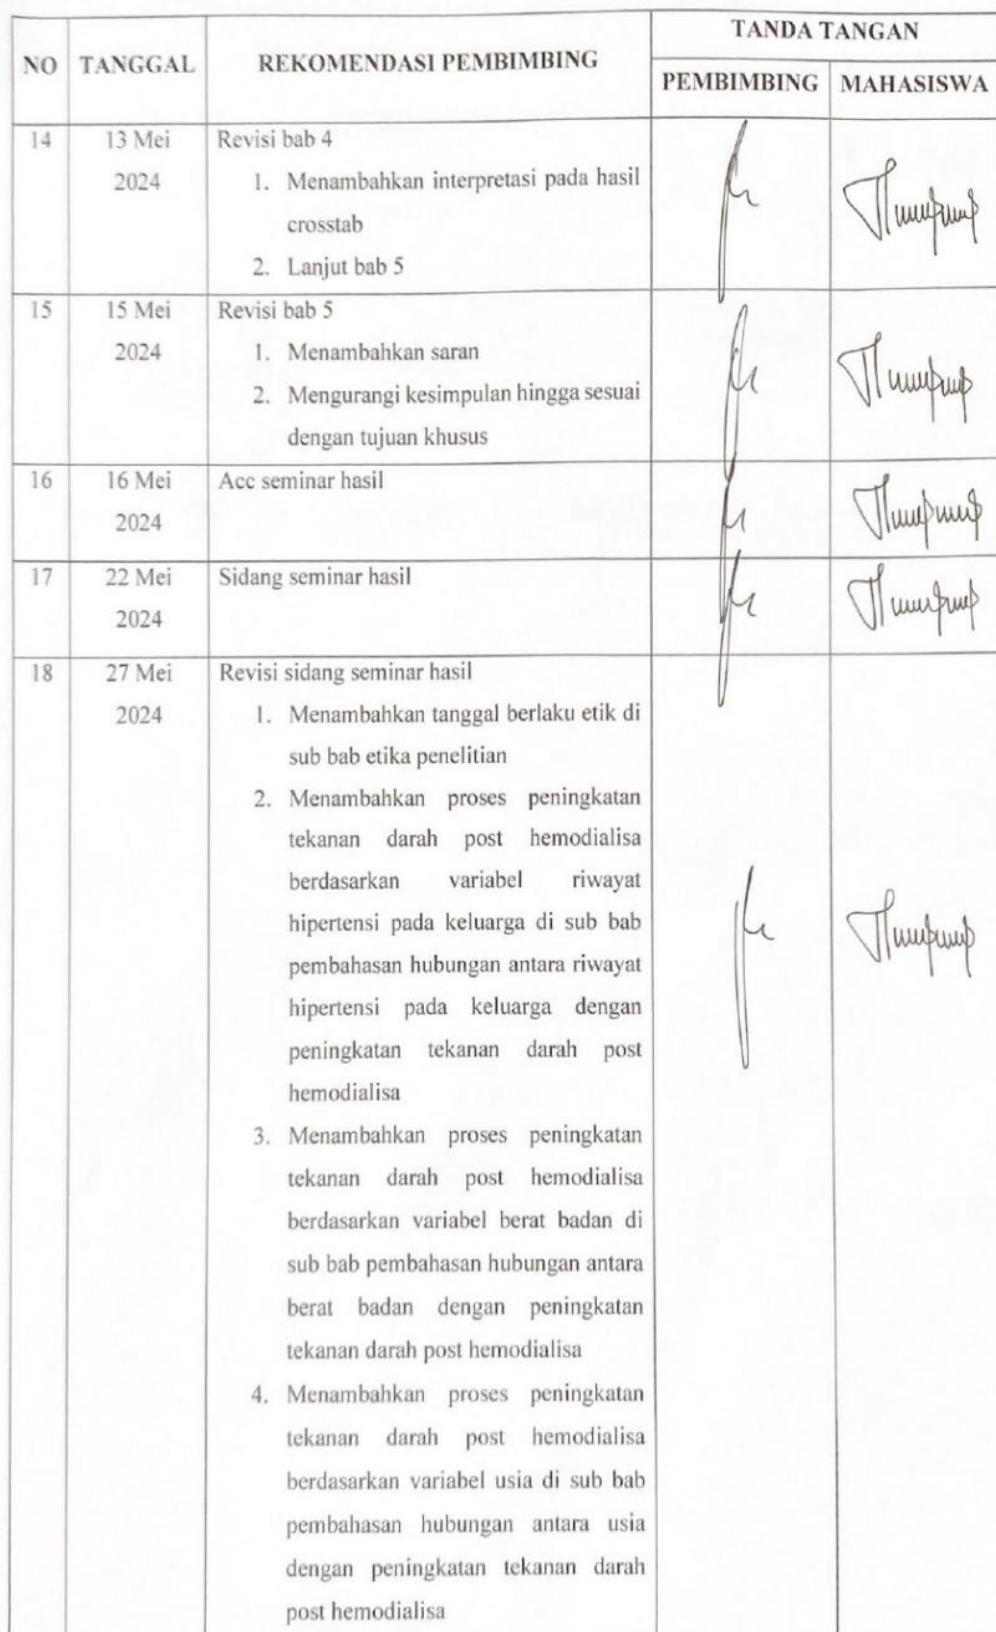 NO TANGGAL REKOMENDASI PEMBIMBING TANDA TANGAN
PEMBIMBING MAHASISWA
14 13 Mei 2024 Revisi bab 4
1. Menambahkan interpretasi pada hasil
crosstab
2. Lanjut bab 5
15 15 Mei 2024 Revisi bab 5
1. Menambahkan saran
2. Mengurangi kesimpulan hingga sesuai
dengan tujuan khusus
16 16 Mei 2024 Acc seminar hasil
17 22 Mei 2024 Sidang seminar hasil
18 27 Mei 2024 Revisi sidang seminar hasil
1. Menambahkan tanggal berlaku etik di
sub bab etika penelitian
2. Menambahkan proses peningkatan
tekanan darah post hemodialisa
berdasarkan variabel riwayat
hipertensi pada keluarga di sub bab
pembahasan hubungan antara riwayat
hipertensi pada keluarga dengan
peningkatan tekanan darah post
hemodialisa
3. Menambahkan proses peningkatan
tekanan darah post hemodialisa
berdasarkan variabel berat badan di
sub bab pembahasan hubungan antara
berat badan dengan peningkatan
tekanan darah post hemodialisa
4. Menambahkan proses peningkatan
tekanan darah post hemodialisa
berdasarkan variabel usia di sub bab
pembahasan hubungan antara usia
dengan peningkatan tekanan darah
post hemodialisa